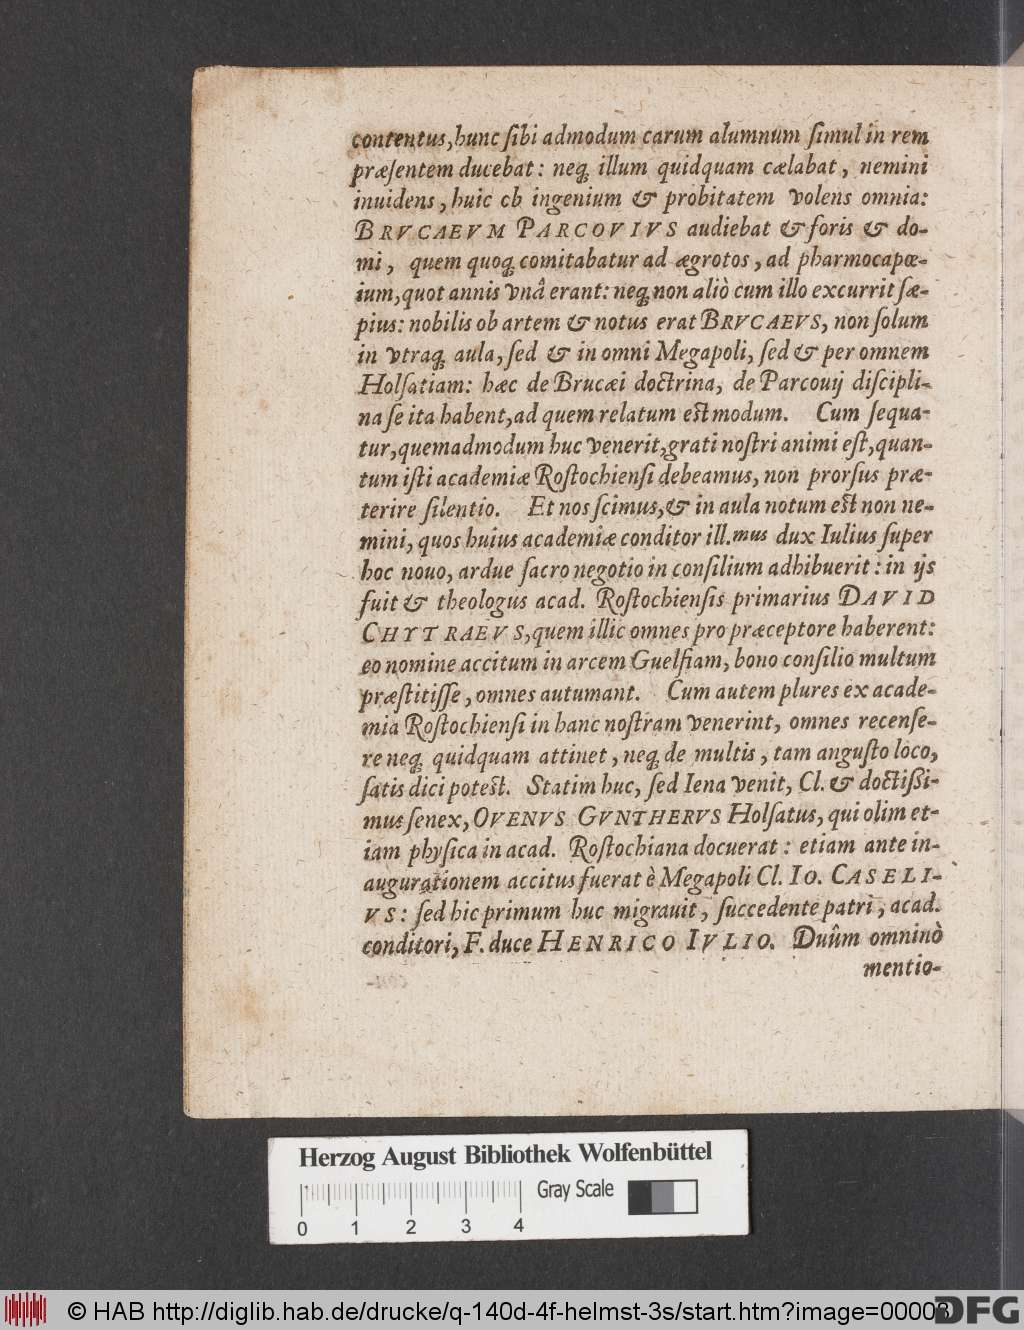 contentus, hunc ſibi admodum carum alumnum ſimul in rem
præſentem ducebat: neq; illum quidquam cælabat, nemini
inuidens, huic cb ingenium & probitatem volens omnia:
BRVCAEVM PARCOVIVS audiebat & foris & do-
mi, quem quoq; comitabatur ad ægrotos, ad pharmocapœ-
ium, quot annis vnâ erant: neq; non aliò cum illo excurrit ſæ-
pius: nobilis ob artem & notus erat BRVCAEVS, non ſolum
in vtraq; aula, ſed & in omni Megapoli, ſed & per omnem
Holſatiam: hæc de Brucæi doctrina, de Parcouij diſcipli-
na ſe ita habent, ad quem relatum eſt modum. Cum ſequa-
tur, quemadmodum huc venerit, grati noſtri animi eſt, quan-
tum iſti academiæ Roſtochienſi debeamus, non prorſus præ-
terire ſilentio. Et nos ſcimus, & in aula notum eſt non ne-
mini, quos huius academiæ conditor ill.mus dux Iulius ſuper
hoc nouo, ardue ſacro negotio in conſilium adhibuerit: in ijs
fuit & theologus acad. Roſtochienſis primarius DAVID
CHYTRAEVS, quem illic omnes pro præceptore haberent:
eo nomine accitum in arcem Guelfiam, bono conſilio multum
præſtitiſſe, omnes autumant. Cum autem plures ex acade-
mia Roſtochienſi in hanc noſtram venerint, omnes recenſe-
re neq; quidquam attinet, neq; de multis, tam anguſto loco,
ſatis dici poteſt. Statim huc, ſed Iena venit, Cl. & doctiſſi-
mus ſenex, OVENVS GVNTHERVS Holſatus, qui olim et-
iam phyſica in acad. Roſtochiana docuerat: etiam ante in-
augurationem accitus fuerat è Megapoli Cl. IO. CASELI-
VS: ſed hic primum huc migrauit, ſuccedente patri, acad.
conditori, F. duce HENRICO IVLIO. Duûm omninò
mentio-
Herzog August Bibliothek Wolfenbüttel
Gray Scale
0 1 2 3 4
© HAB http://diglib.hab.de/drucke/q-140d-4f-helmst-3s/start.htm?image=00008
DFG